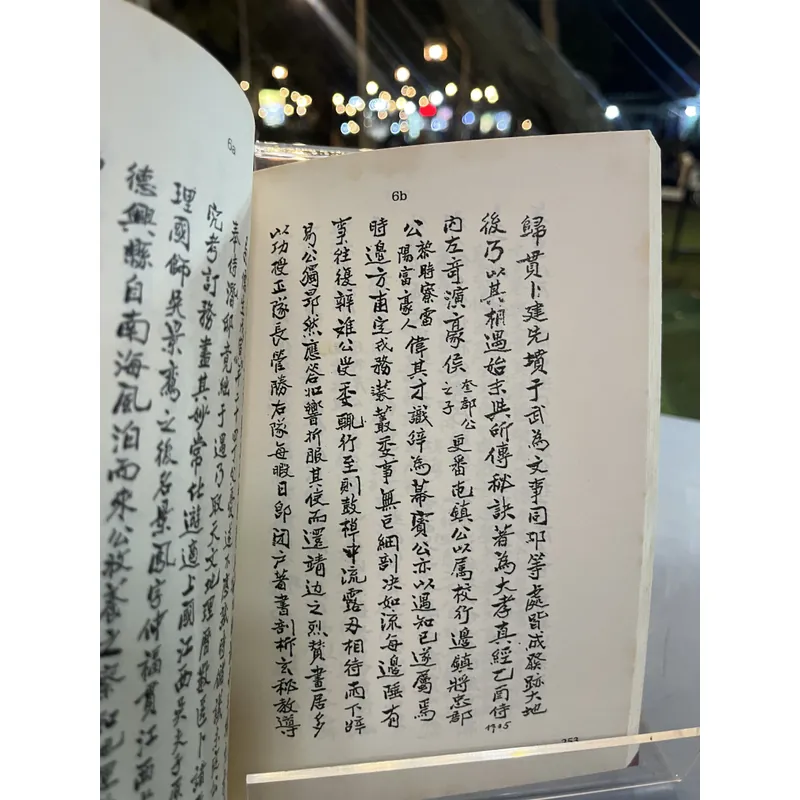 6a
究考訂務盡其妙常仕遊適上國江西吳夫子
理國師吳景鸞之後名景鳳字仲福貫江西
德興縣自南海風泊而來公救養之
6b
歸貫卜建先墳于武為文事同邛等處皆成發跡大地
後乃以其相遇始末與所傳秘訣著為大孝真經乙酉侍 1705
内左奇演豪侯 奎郡公之子 更番屯鎮公以属校行邊鎮將忠郡
公 黎時寮雷陽富豪人 偉其才識辟為幕賓公亦以遇知已遂屬焉
時邊方甫定戎務裝叢委事無巨細剖决如流每邊陲有
事往復辨难公受委輒行至則鼓棹中流露刃相待而下辞
易公獨昂然應答如響折服其使而還靖边之烈贊畫居多
以功授正隊長管勝右隊每暇日即閉户著書剖析玄秘教導
253